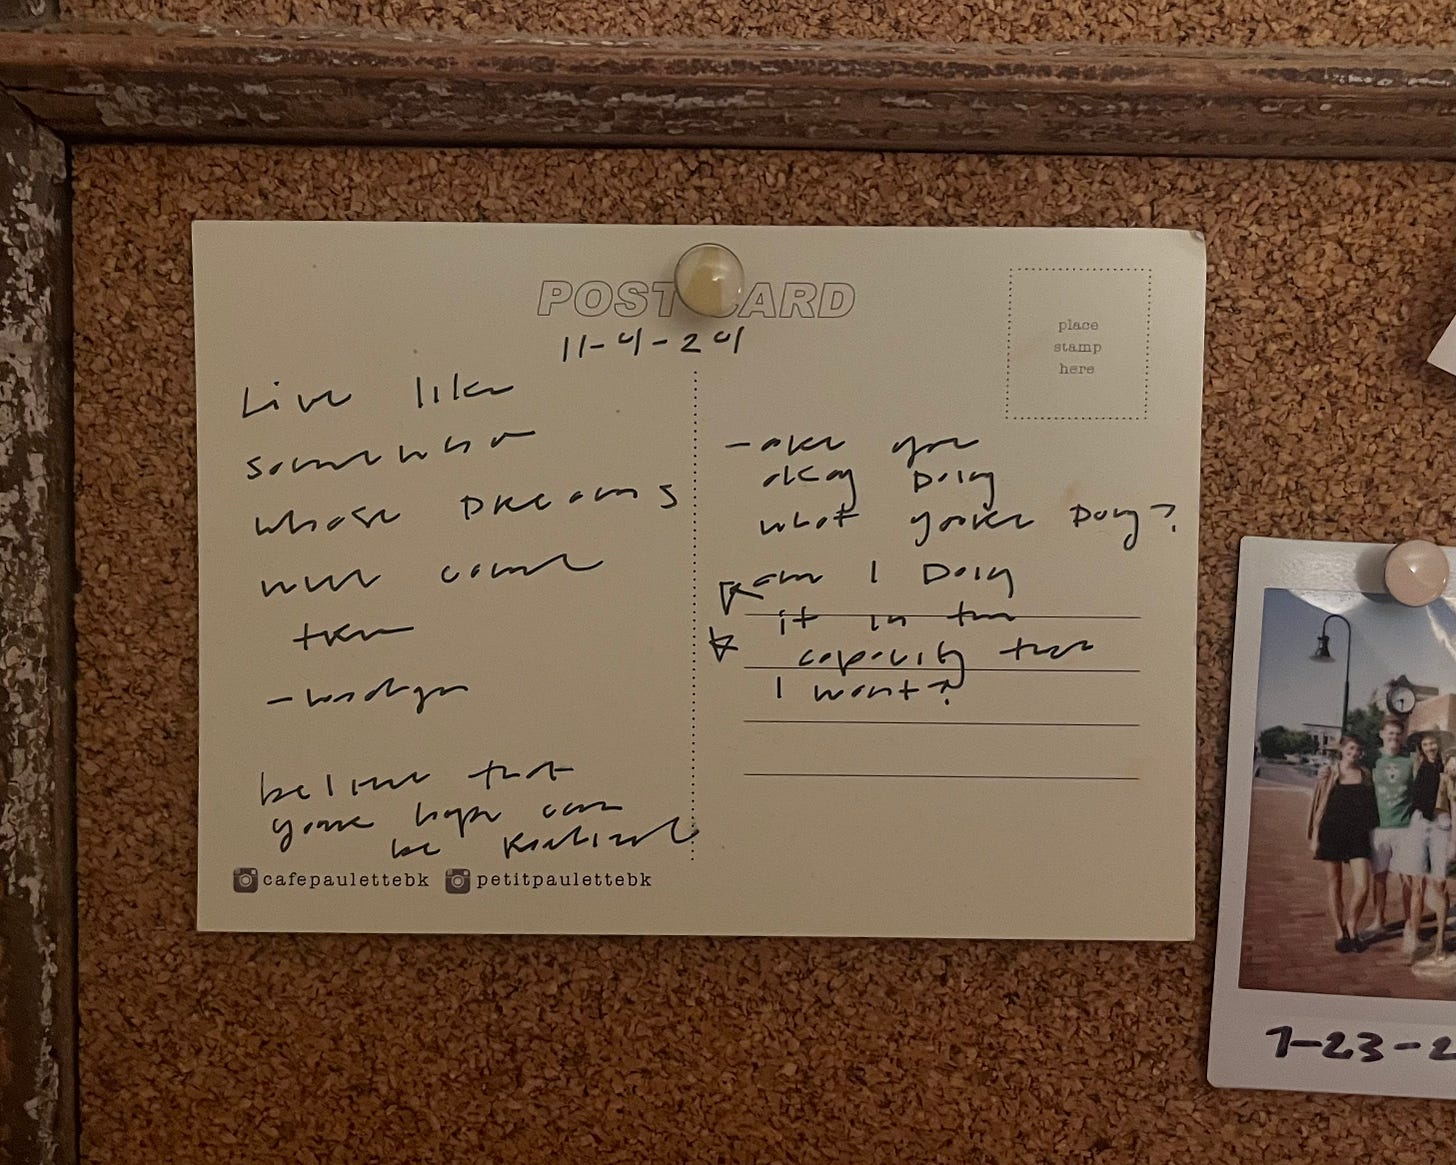 POSTCARD
11-4-24
place
stamp
here
Live like
someone
whose Dreams
will come
true
believe that
your hope can
be Realized
cafepaulettebk petitpaulettebk
- are you
okay Doing
what you're Doing?
am I Doing
it in the
capacity that
I want?
7-23-2